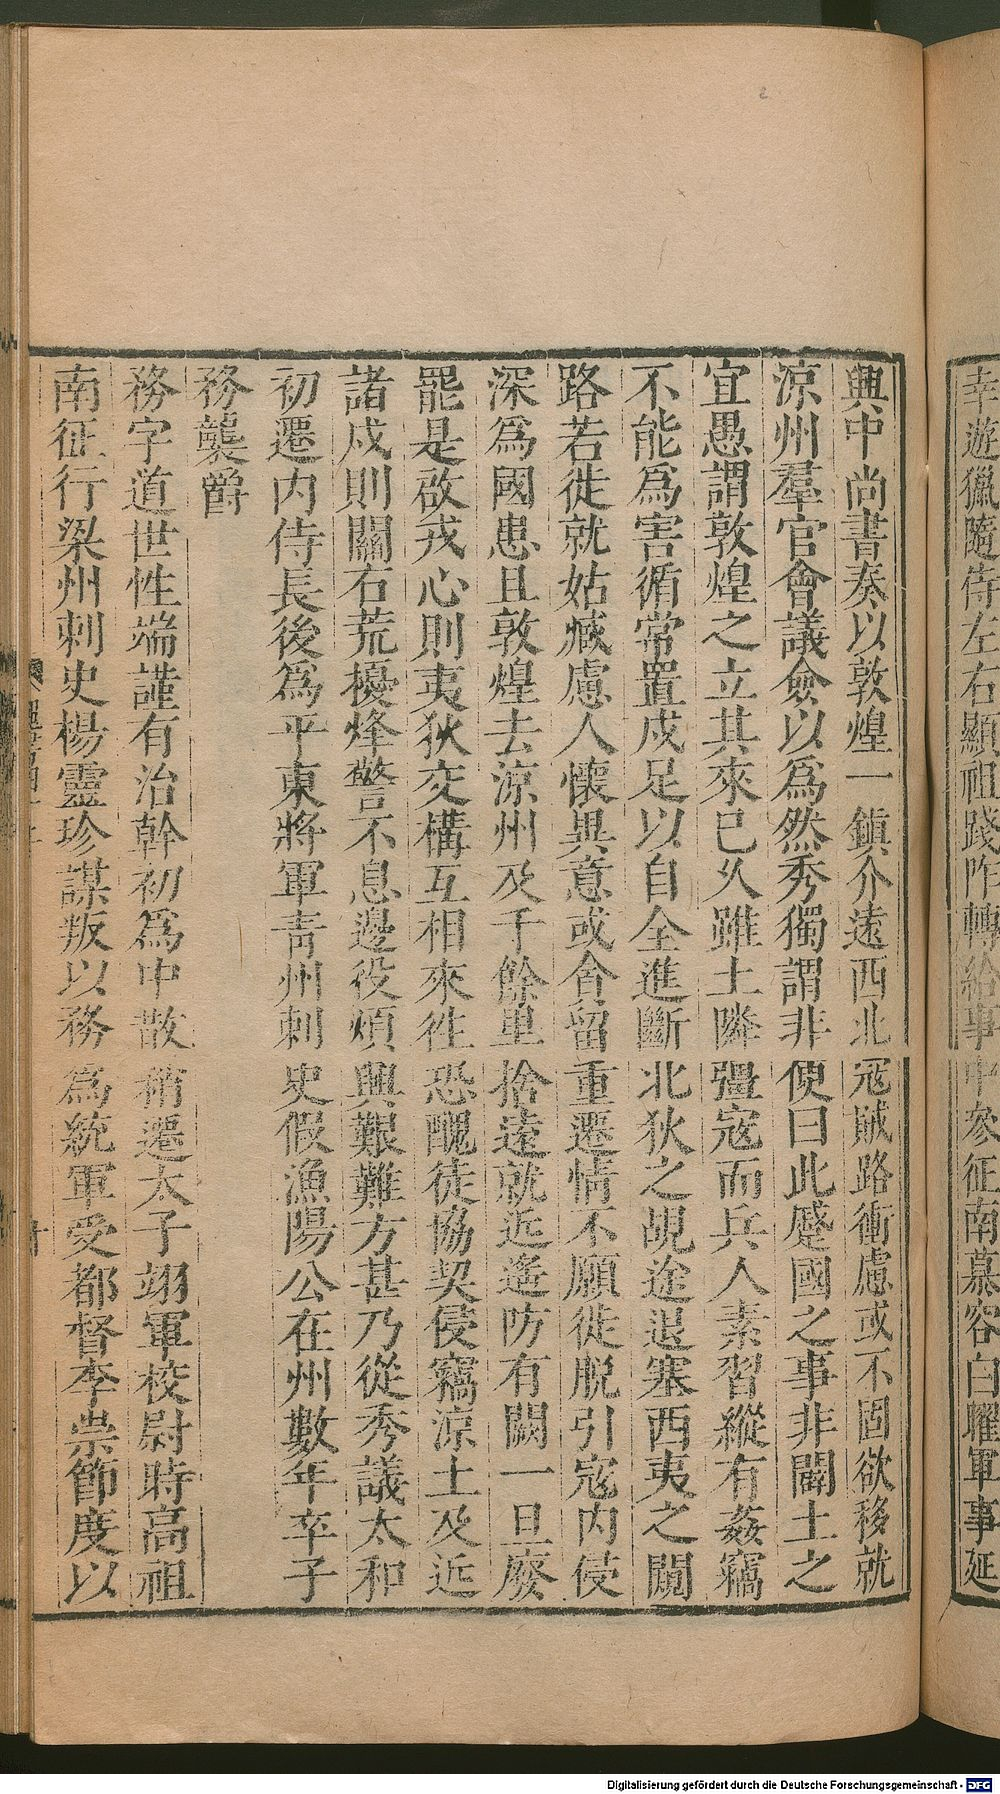 幸遊獵隨侍左右顯祖踐阼轉給事中參征南慕容白曜軍事延
興中尚書奏以敦煌一鎮介遠西北寇賊路衝慮或不固欲移就
涼州羣官會議僉以爲然秀獨謂非便曰此蹙國之事非闢土之
宜愚謂敦煌之立其來已久雖土隣彊寇而兵人素習縱有姦竊
不能爲害循常置戍足以自全進斷北狄之覘途退塞西夷之闚
路若徙就姑臧慮人懷異意或貪留重遷情不願徙脫引寇內侵
深爲國患且敦煌去涼州及千餘里捨遠就近遙防有闕一旦廢
罷是啟戎心則夷狄交構互相來往恐醜徒協契侵竊涼土及近
諸戍則關右荒擾烽警不息邊役煩興艱難方甚乃從秀議太和
初遷內侍長後爲平東將軍靑州刺史假漁陽公在州數年卒子
務襲爵
務字道世性端謹有治幹初爲中散稍遷太子翊軍校尉時高祖
南征行梁州刺史楊靈珍謀叛以務爲統軍受都督李崇節度以
Digitalisierung gefördert durch die Deutsche Forschungsgemeinschaft - DFG